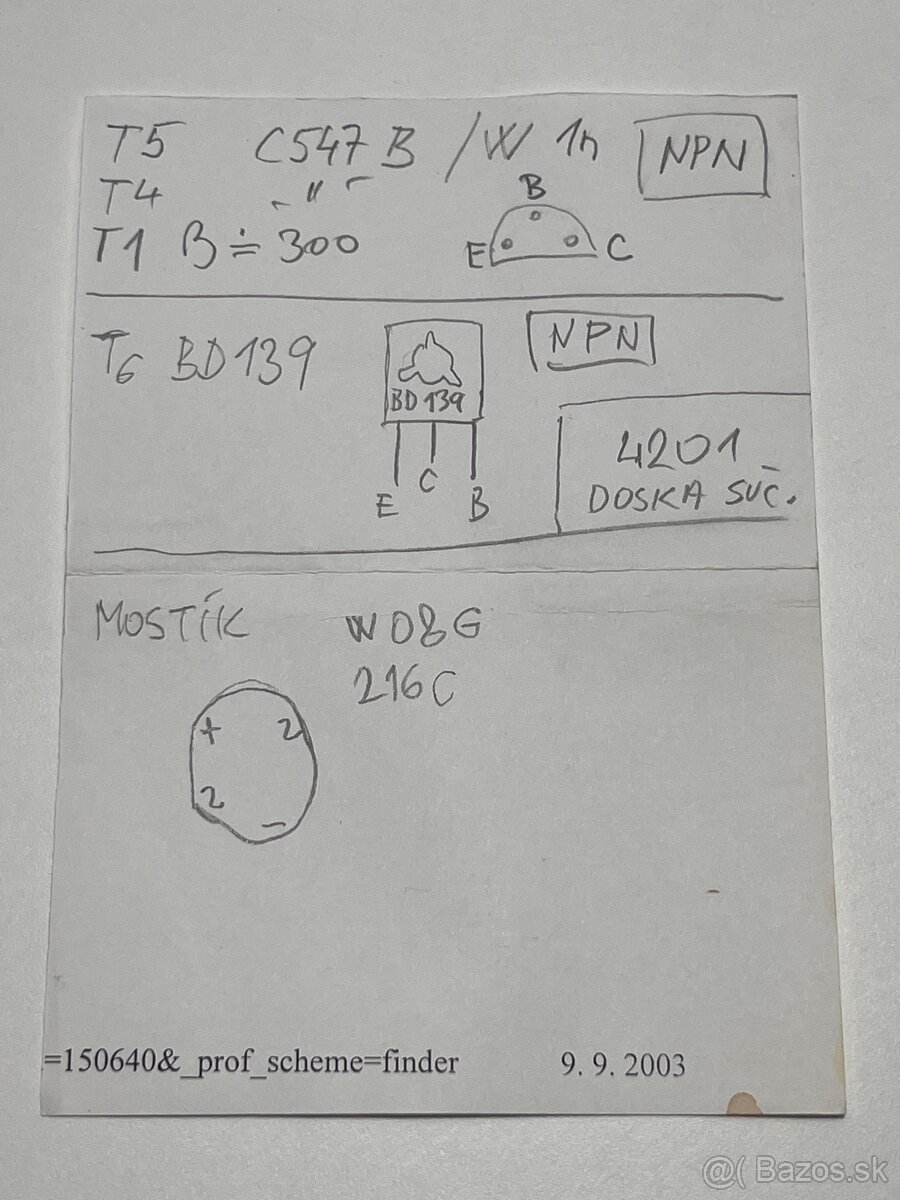 T5 C547 B /W 1n NPN
T4 - " -
T1 B ≐ 300
B
E C
T6 BD139 NPN
BD 139
E C B
4201
DOSKA SÚČ.
MOSTÍK W08G
216C
+ 2
2 -
=150640&_prof_scheme=finder 9. 9. 2003
@( Bazos.sk